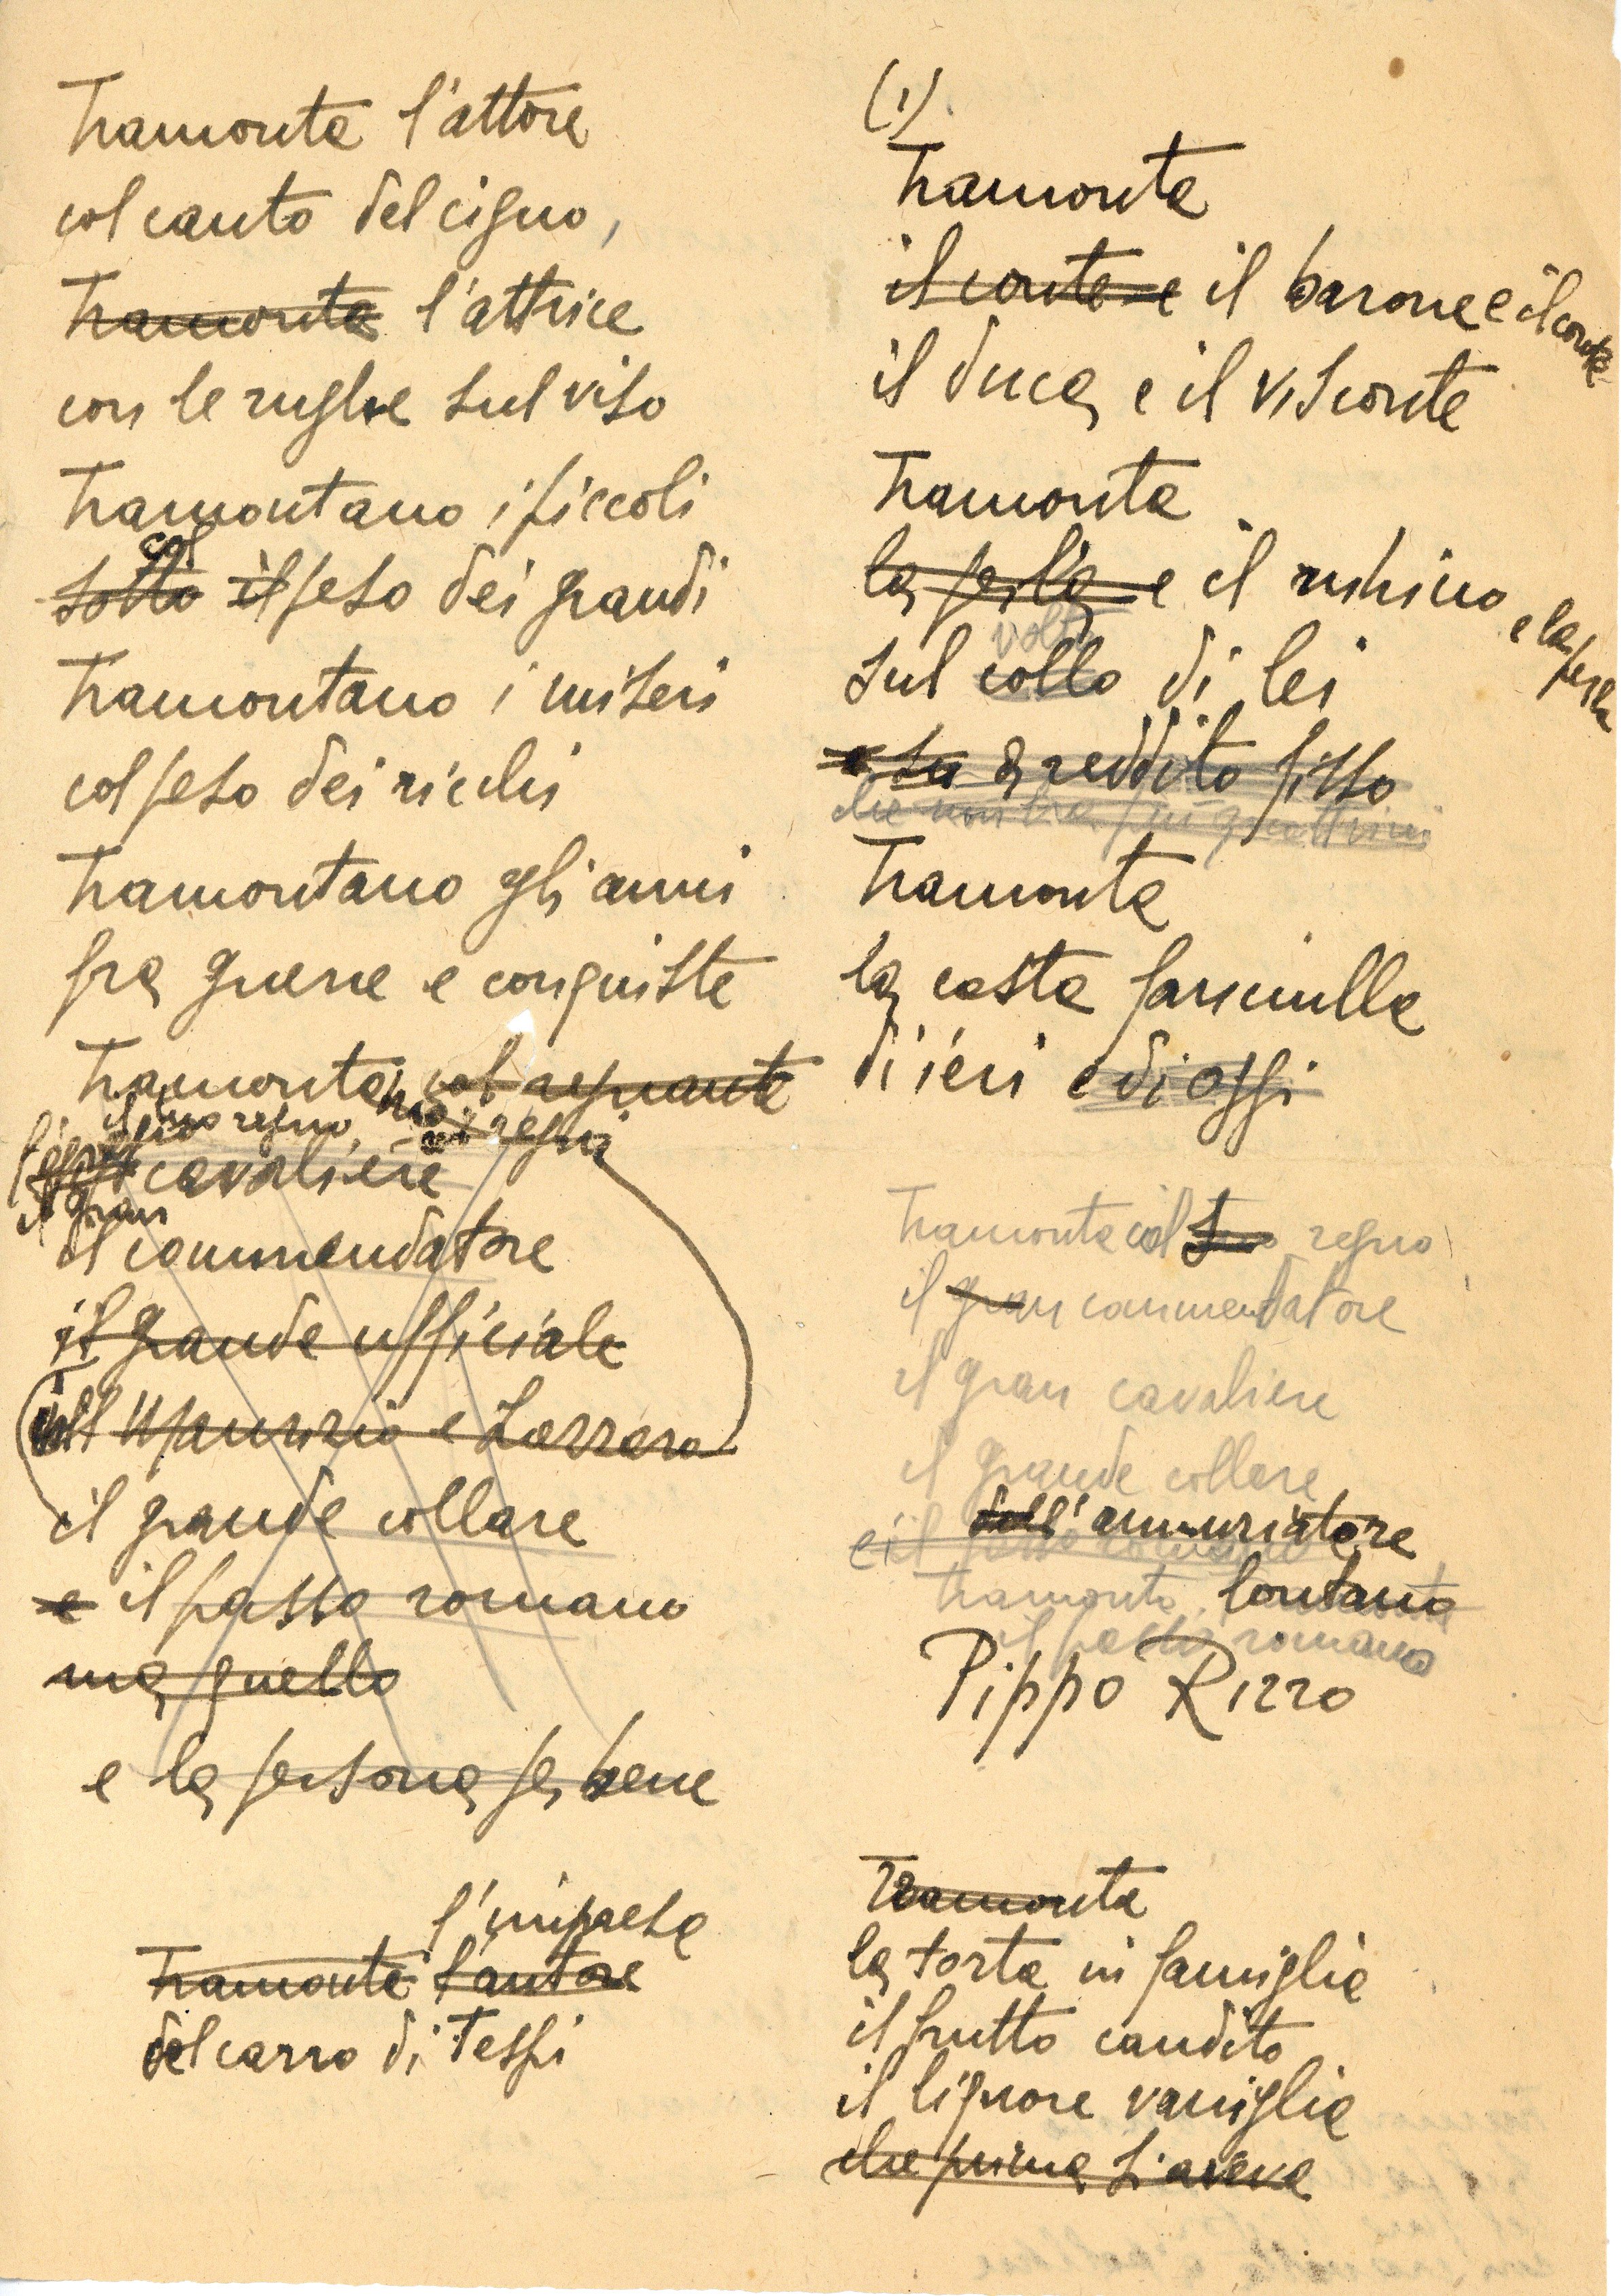 Tramonta l'attore
col canto del cigno,
Tramonta l'attrice
con le rughe sul viso
Tramontano i piccoli
col
sotto il peso dei grandi
Tramontano i miseri
col peso dei ricchi
Tramontano gli anni
fra guerre e conquiste
Tramonta col regnante
regno regni
cavaliere
il gran
il commendatore
il grande ufficiale
Maurizio e Lazzaro
il grande collare
e il passo romano
ma quello
e la persona per bene
l'impresa
Tramonta l'autore
del carro di Tespi
(1)
Tramonta
il conte e il barone e il conte
il duca e il visconte
Tramonta
la perla e il rubino e la perla
volto
sul collo di lei
e su a reddito fisso
che non ha più quattrini
Tramonta
la casta fanciulla
di ieri e di oggi
Tramonta col suo regno
il gran commendatore
il gran cavaliere
il grande collare
dell'annunziatore
e il passo romano
tramonta lontano
il passo romano
Pippo Rizzo
Tramonta
la torta in famiglia
il frutto candito
il liquore vaniglia
che prima s'aveva